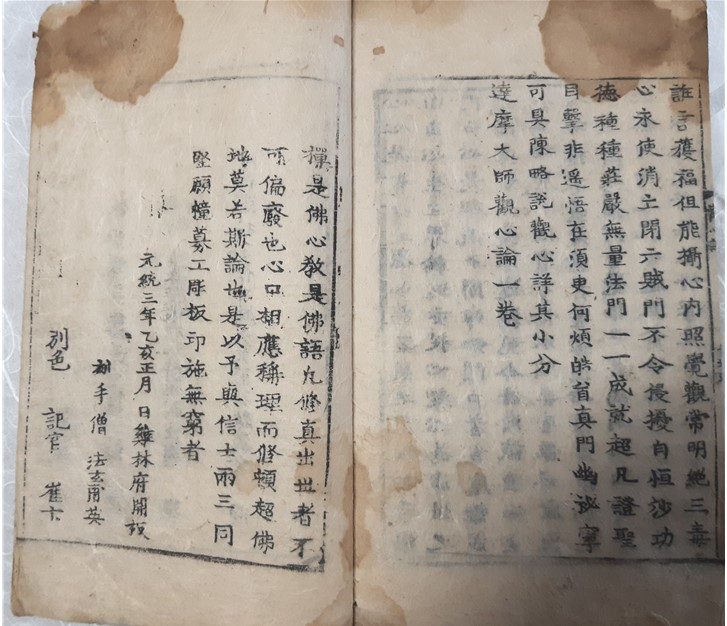 誰言獲福但能攝心內照覺觀常明絶三毒
心永使消亡閉六賊門不令侵擾自恒沙功
德種種莊嚴無量法門一一成就超凡證聖
目擊非遥悟在須臾何煩皓首真門幽祕寧
可具陳略說觀心詳其小分
達摩大師觀心論一卷
禪是佛心敎是佛語凡修真出世者不
可偏廢也心口相應稱理而修頓超佛
地莫若斯論也是以予與信士兩三同
堅願幢募工彫板印施無窮者
元統三年乙亥正月 日雞林府開板
手僧 法玄 英
別色 記官 崔